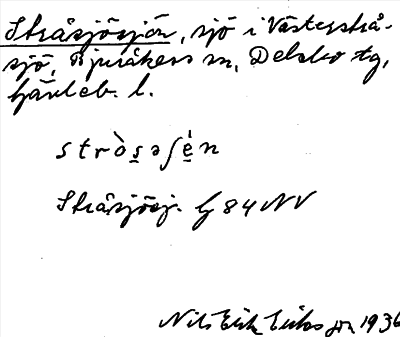 Stråsjösjön, sjö i Västerstrå-
sjö, Bjuråkers sn, Delsbo tg,
Gävleb. l.
stròsəʃén
Stråsjösj. G 84 NV
Nils Erik Eriksson 1936